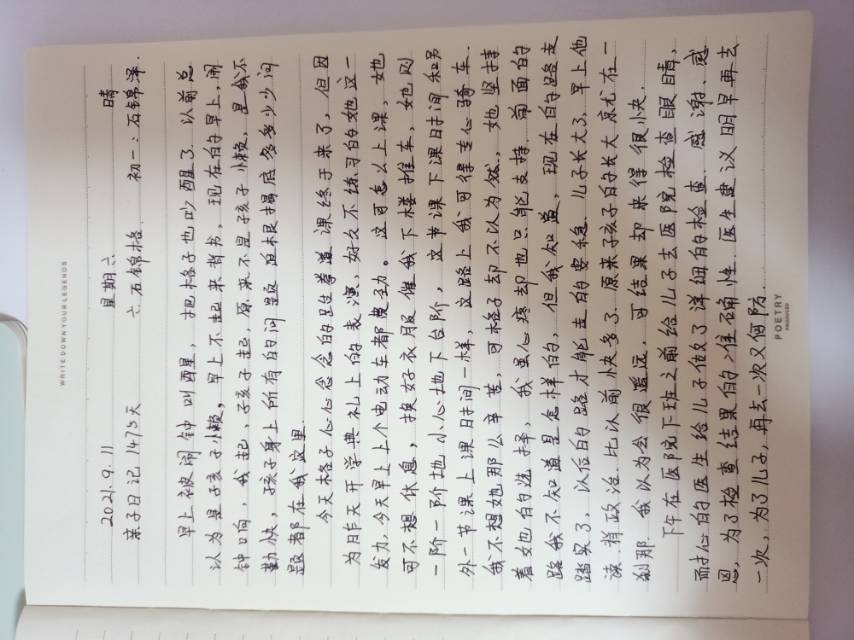 WRITE DOWN YOUR LEGENDS
2021.9.11 星期六 晴
亲子日记1475天 六:石锦格 初一:石锦泽.
早上被闹钟叫醒, 把格子也吵醒了. 以前总
认为是孩子小懒, 早上不起来背书, 现在的早上, 闹
钟口向, 我起、孩子起, 原来不是孩子小懒, 是我不
勤快, 孩子身上所有的问题 追根揭底多多少少问
题都在我这里.
今天格子心心念念的跆拳道课终于来了, 但因
为昨天开学典礼上的表演, 好久不练习的她这一
发力, 今天早上上个电动车都费劲. 这可怎么上课, 她
可不想休息, 换好衣服催我下楼推车, 她则
一阶一阶地小心地下台阶, 这节课下课时间和另
外一节课上课时间一样, 这路上我可得专心骑车.
我不想她那么辛苦, 可格子却不以为然, 她坚持
着她的选择, 我虽心疼却也只能支持. 前面的
路我不知道是怎样的, 但我知道, 现在的路走
踏实了, 以后的路才能走的要稳. 儿子长大了, 早上他
读背政治. 比以前快多了. 原来孩子的长大 就在一
刹那. 我以为会很遥远, 可结果却来得很快.
下午在医院下班之前给儿子去医院检查眼睛,
耐心的医生给儿子做了详细的检查. 感谢、感
恩, 为了检查结果的准确性. 医生建议明早再去
一次, 为了儿子, 再去一次又何防.
POETRY